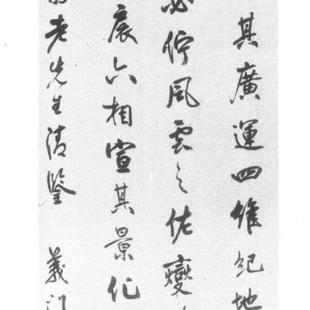 其廣運四維紀地
佇風雲之佐變
六相宣其景化
老先生清鑒 義